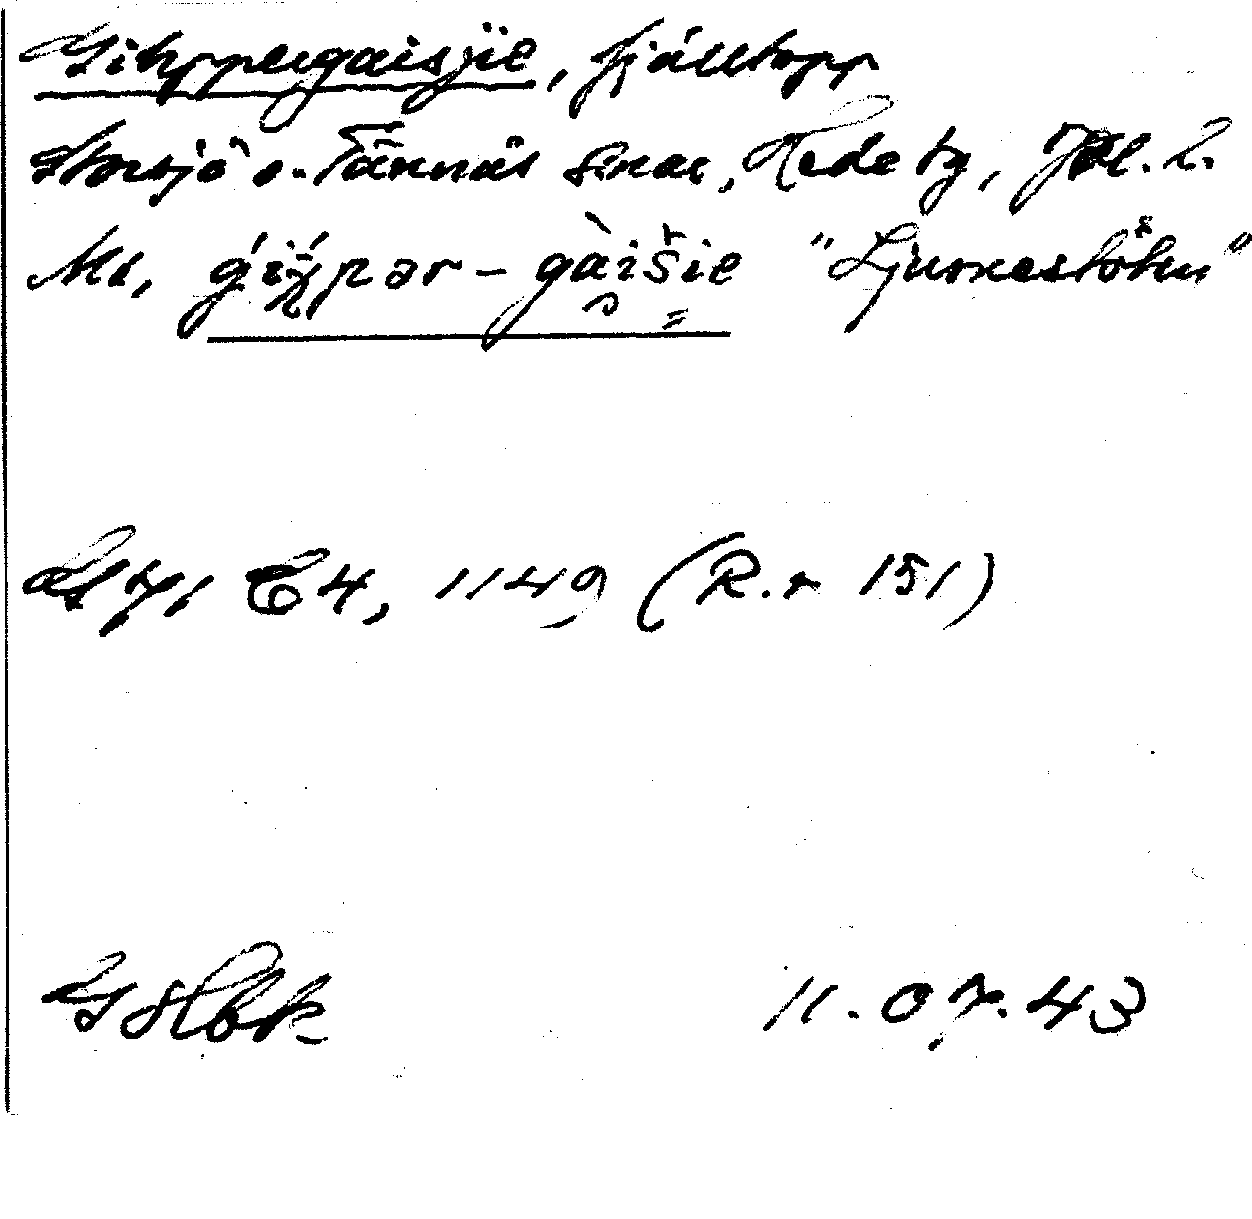 Gihpergaisjie, fjälltopp
Storsjö o. Tännäs snar, Hede tg, Jtl. l.
Ms, gìχpər-gàišie "Ljusneslöken"
C4, 1149 (R.r 151)
11.07.43